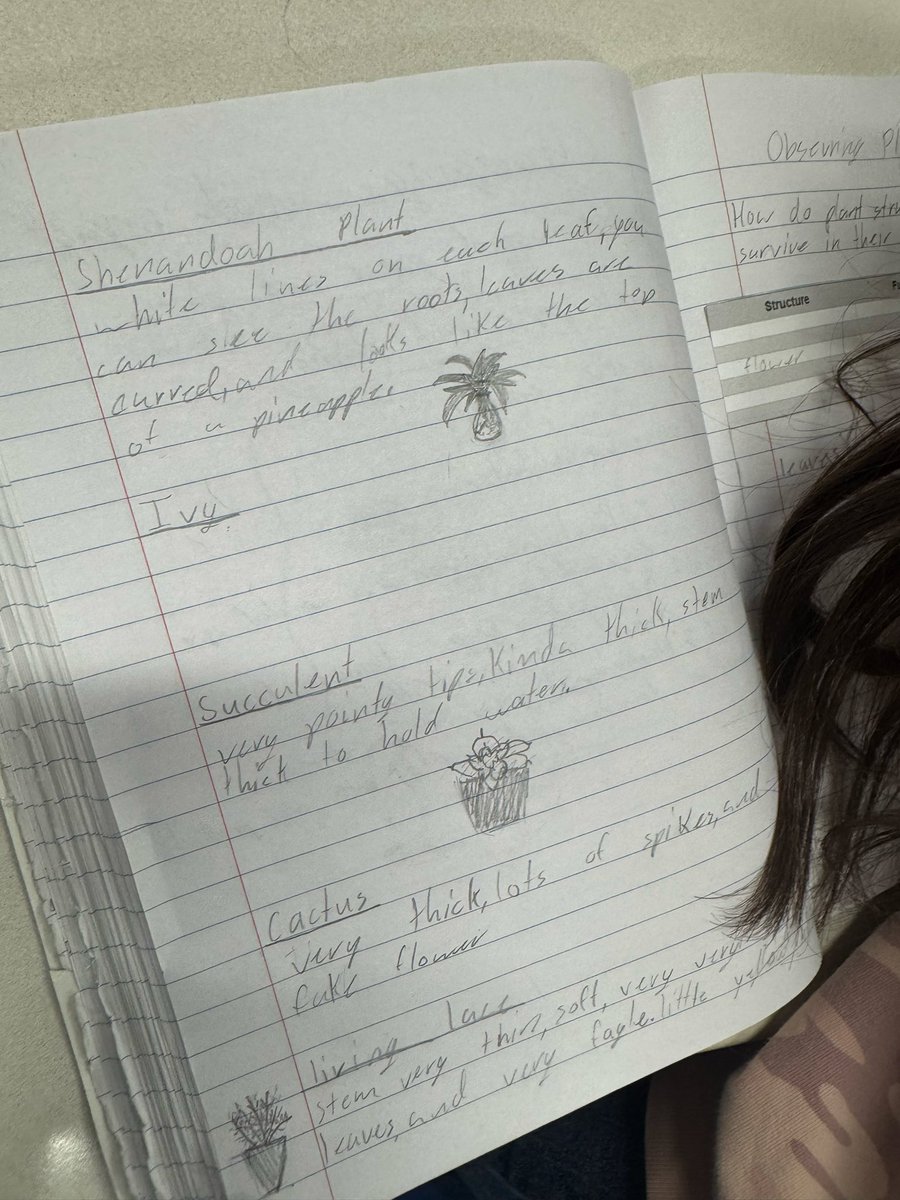 Shenandoah Plant
white lines on each leaf, you
can see the roots, leaves are
curved, and looks like the top
of a pineapple.
Ivy
Succulent
very pointy tips, Kinda thick, stem
thick to hold water.
Cactus
very thick, lots of spikes, and
fake flower
living lace
stem very thin, soft, very very
leaves, and very fagle. little yellow
Obseuring Pl
How do plant stru
survive in their
Structure
Fu
flower
leaves